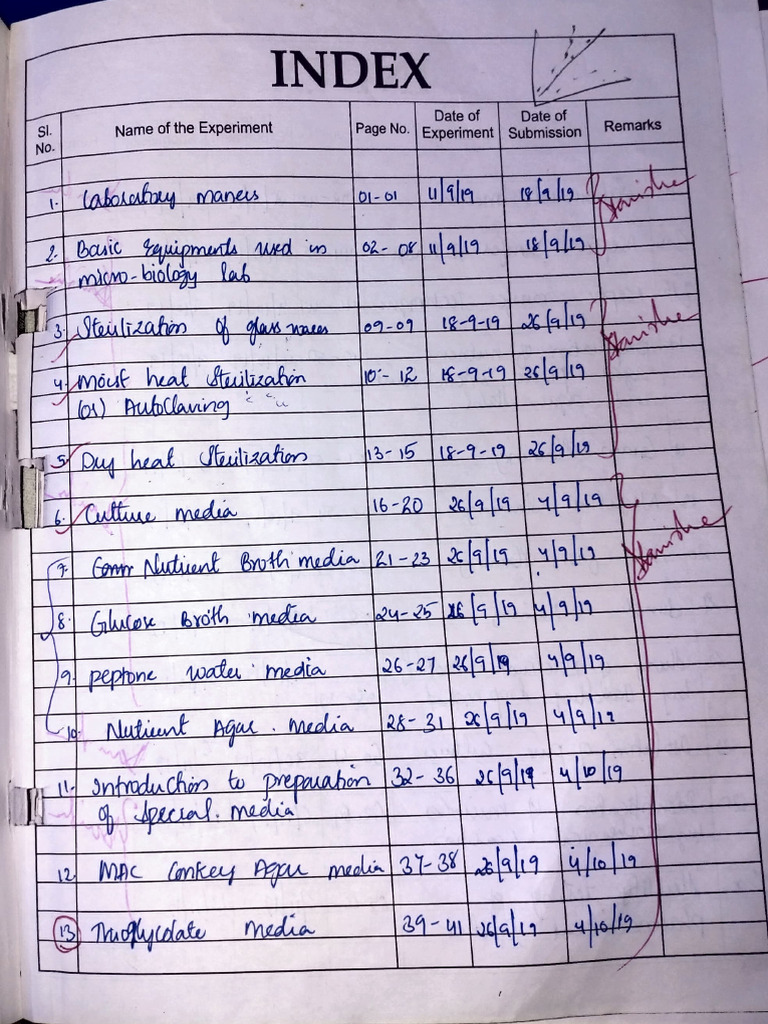 INDEX
Sl. No. Name of the Experiment Page No. Date of Experiment Date of Submission Remarks
1. Laboratory maners 01-01 11/9/19 18/9/19
2. Basic Equipments used in 02-08 11/9/19 18/9/19
micro-biology lab
3. Sterilization of glass wares 09-09 18-9-19 26/9/19
4. Moist heat Sterilization 10-12 18-9-19 26/9/19
(or) AutoClaving
5. Dry heat Sterilization 13-15 18-9-19 26/9/19
6. Culture media 16-20 26/9/19 4/9/19
7. Nutrient Broth media 21-23 26/9/19 4/9/19
8. Glucose Broth media 24-25 26/9/19 4/9/19
9. peptone water media 26-27 26/9/19 4/9/19
10. Nutrient Agar. Media 28-31 26/9/19 4/9/19
11. Introduction to preparation 32-36 26/9/19 4/10/19
of special. media
12. MAC Conkey Agar media 37-38 26/9/19 4/10/19
13 Thioglycolate media 39-41 26/9/19 4/10/19